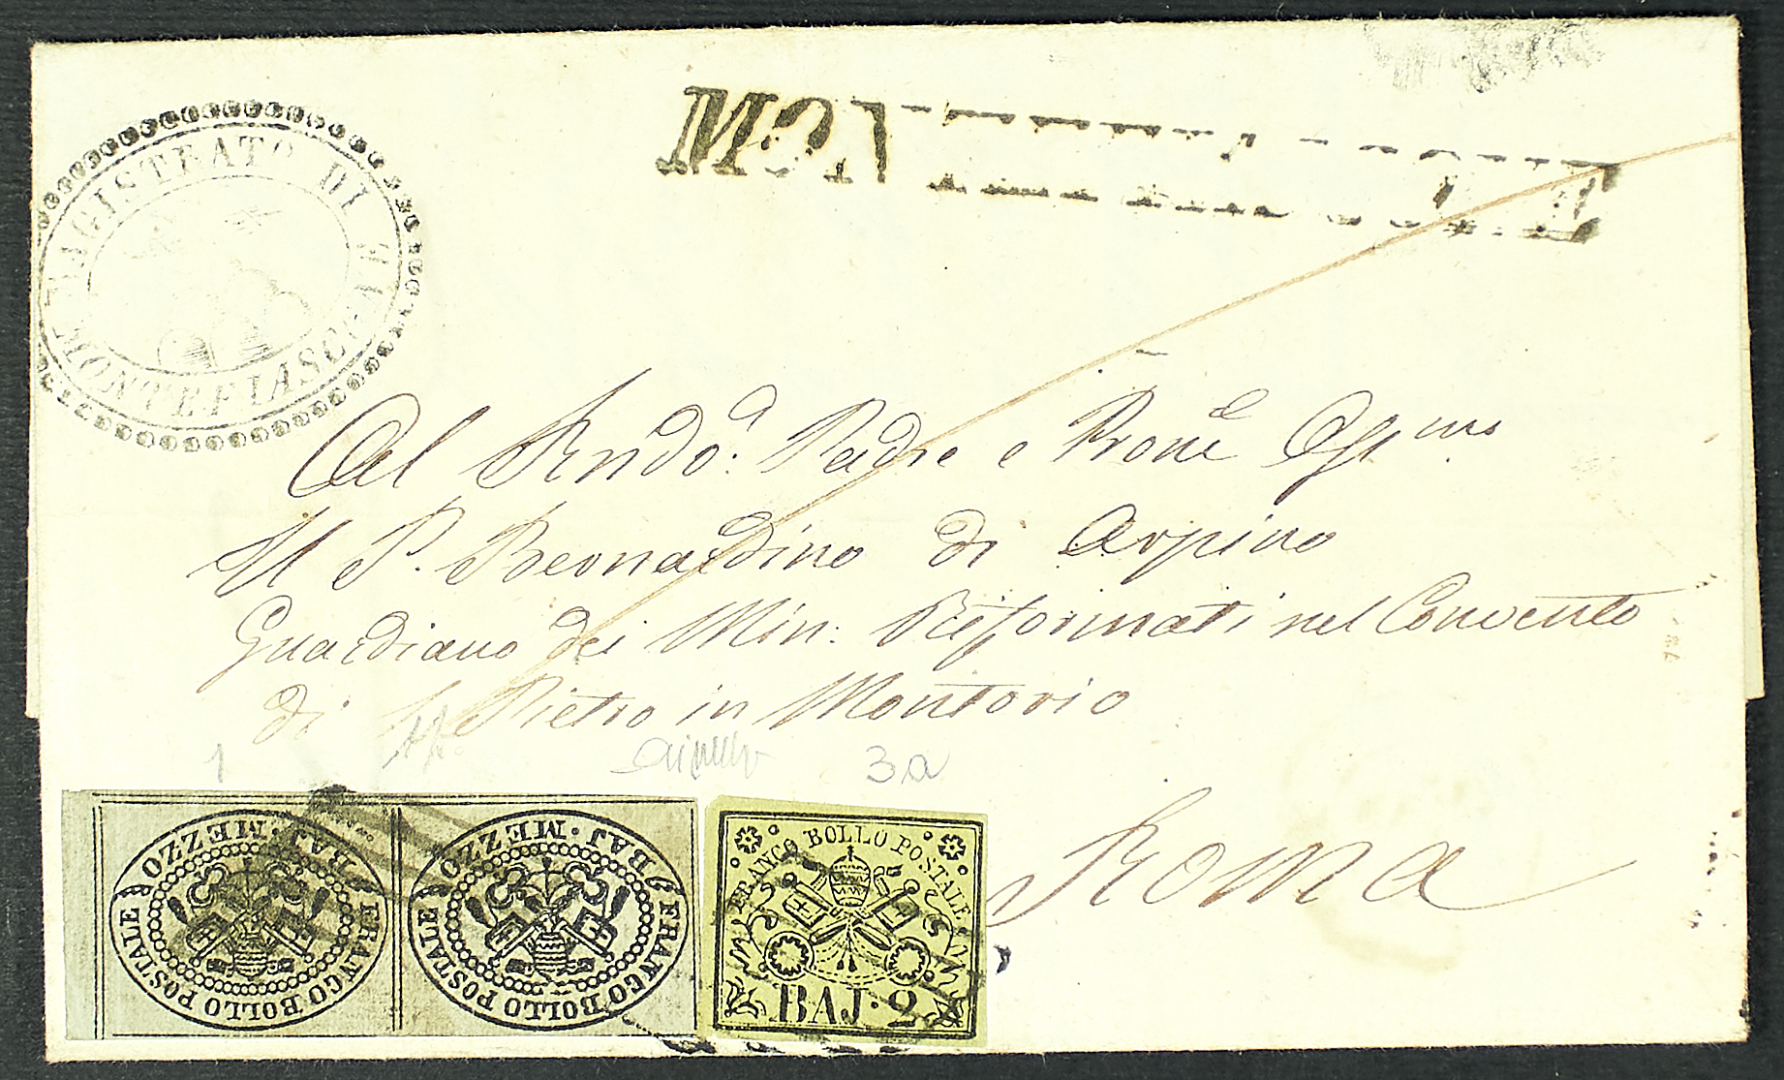 MAGISTRATO DI
MONTEFIASCONE
Al Rndo: Padre e Prone
Il P. Bernardino di Arpino
Guardiano dei Min: Riformati nel Convento
di S. Pietro in Montorio
1
3a
Roma
FRANCO BOLLO POSTALE
BAJ. MEZZO
FRANCO BOLLO POSTALE
BAJ. MEZZO
FRANCO BOLLO POSTALE
BAJ. 2